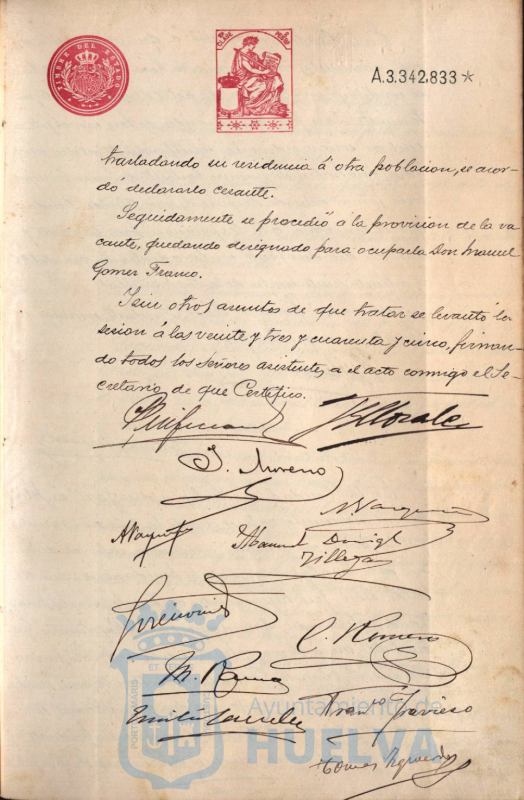 TIMBRE DEL ESTADO
A.3.342.833*
trasladando su residencia á otra poblacion, se acor-
dó declararlo cesante.
Seguidamente se procedió á la provision de la va
cante, quedando designado para ocuparla Don Manuel
Gomez Franco.
I sin otros asuntos de que tratar se levantó la
sesion á las veinte y tres y cuarenta y cinco, firman-
do todos los Señores asistentes a el acto conmigo el Se-
cretario, de que Certifico.
J. Moreno
Manuel
Villegas
C. Romero
Ayuntamiento de
HUELVA